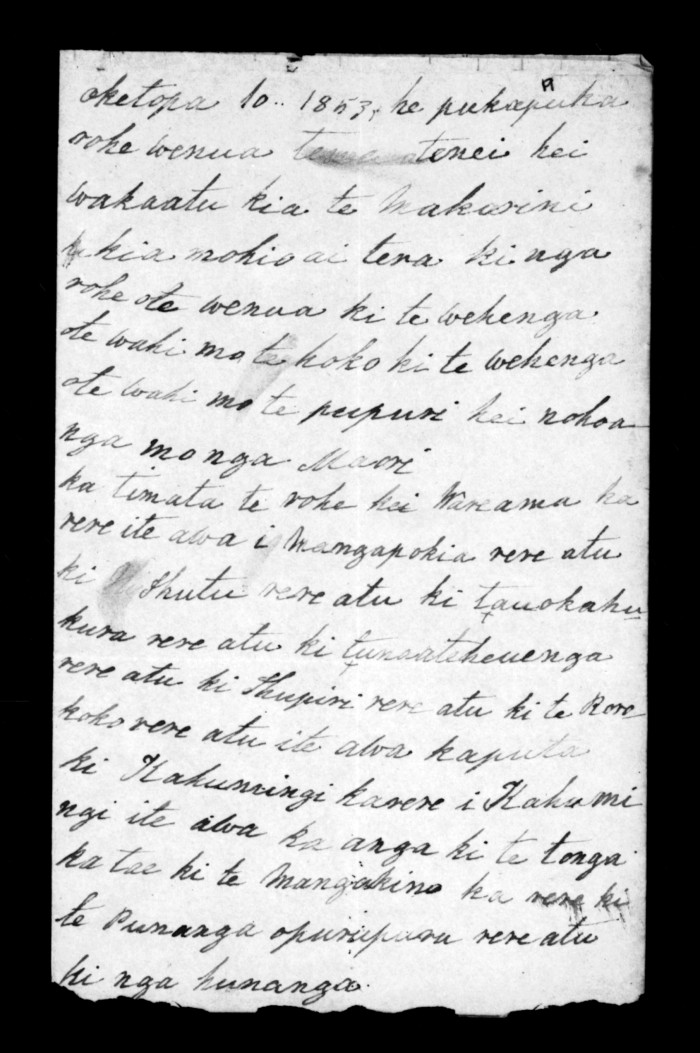 oketopa 10.. 1853, he pukapuka
rohe wenua tenei hei
wakaatu kia te Makarini
kia mohio ai tera ki nga
rohe ote wenua ki te wehenga
ote wahi mo te hoko ki te wehenga
ote wahi mo te pupuri hei nohoa
nga mo nga Maori
ka timata te rohe kei Wareama ka
rere ite awa i Mangapokia rere atu
ki Ihutu rere atu ki tauokahu
kura rere atu ki
rere atu ki Ihupiri rere atu ki te Kore
koko rere atu ite awa kaputa
ki Kahumingi karere i Kahumi
ngi ite awa ka anga ki te tonga
ka tae ki te Mangakino ka rere ki
te Punanga opuruparu rere atu
ki nga hunanga.